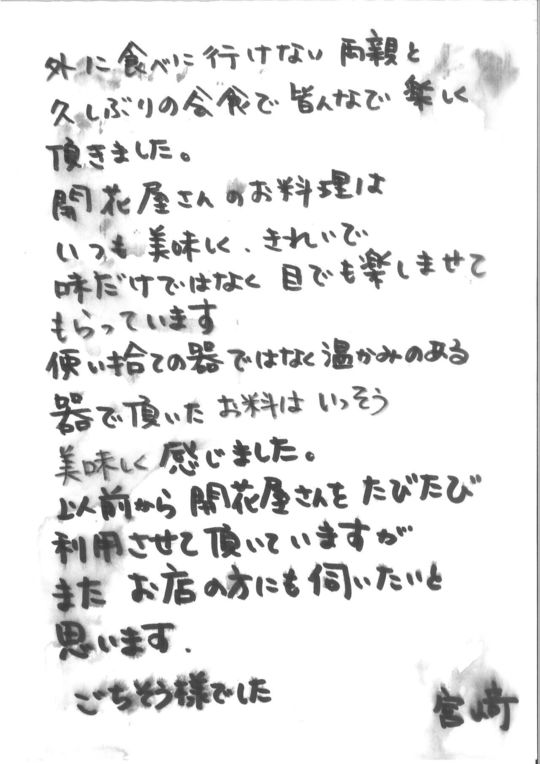 外に食べに行けない両親と
久しぶりの会食で皆んなで楽しく
頂きました。
開花屋さんのお料理は
いつも美味しく、きれいで
味だけではなく目でも楽しませて
もらっています
使い捨ての器ではなく温かみのある
器で頂いたお料はいっそう
美味しく感じました。
以前から開花屋さんをたびたび
利用させて頂いていますが
またお店の方にも伺いたいと
思います.
ごちそう様でした
宮﨑